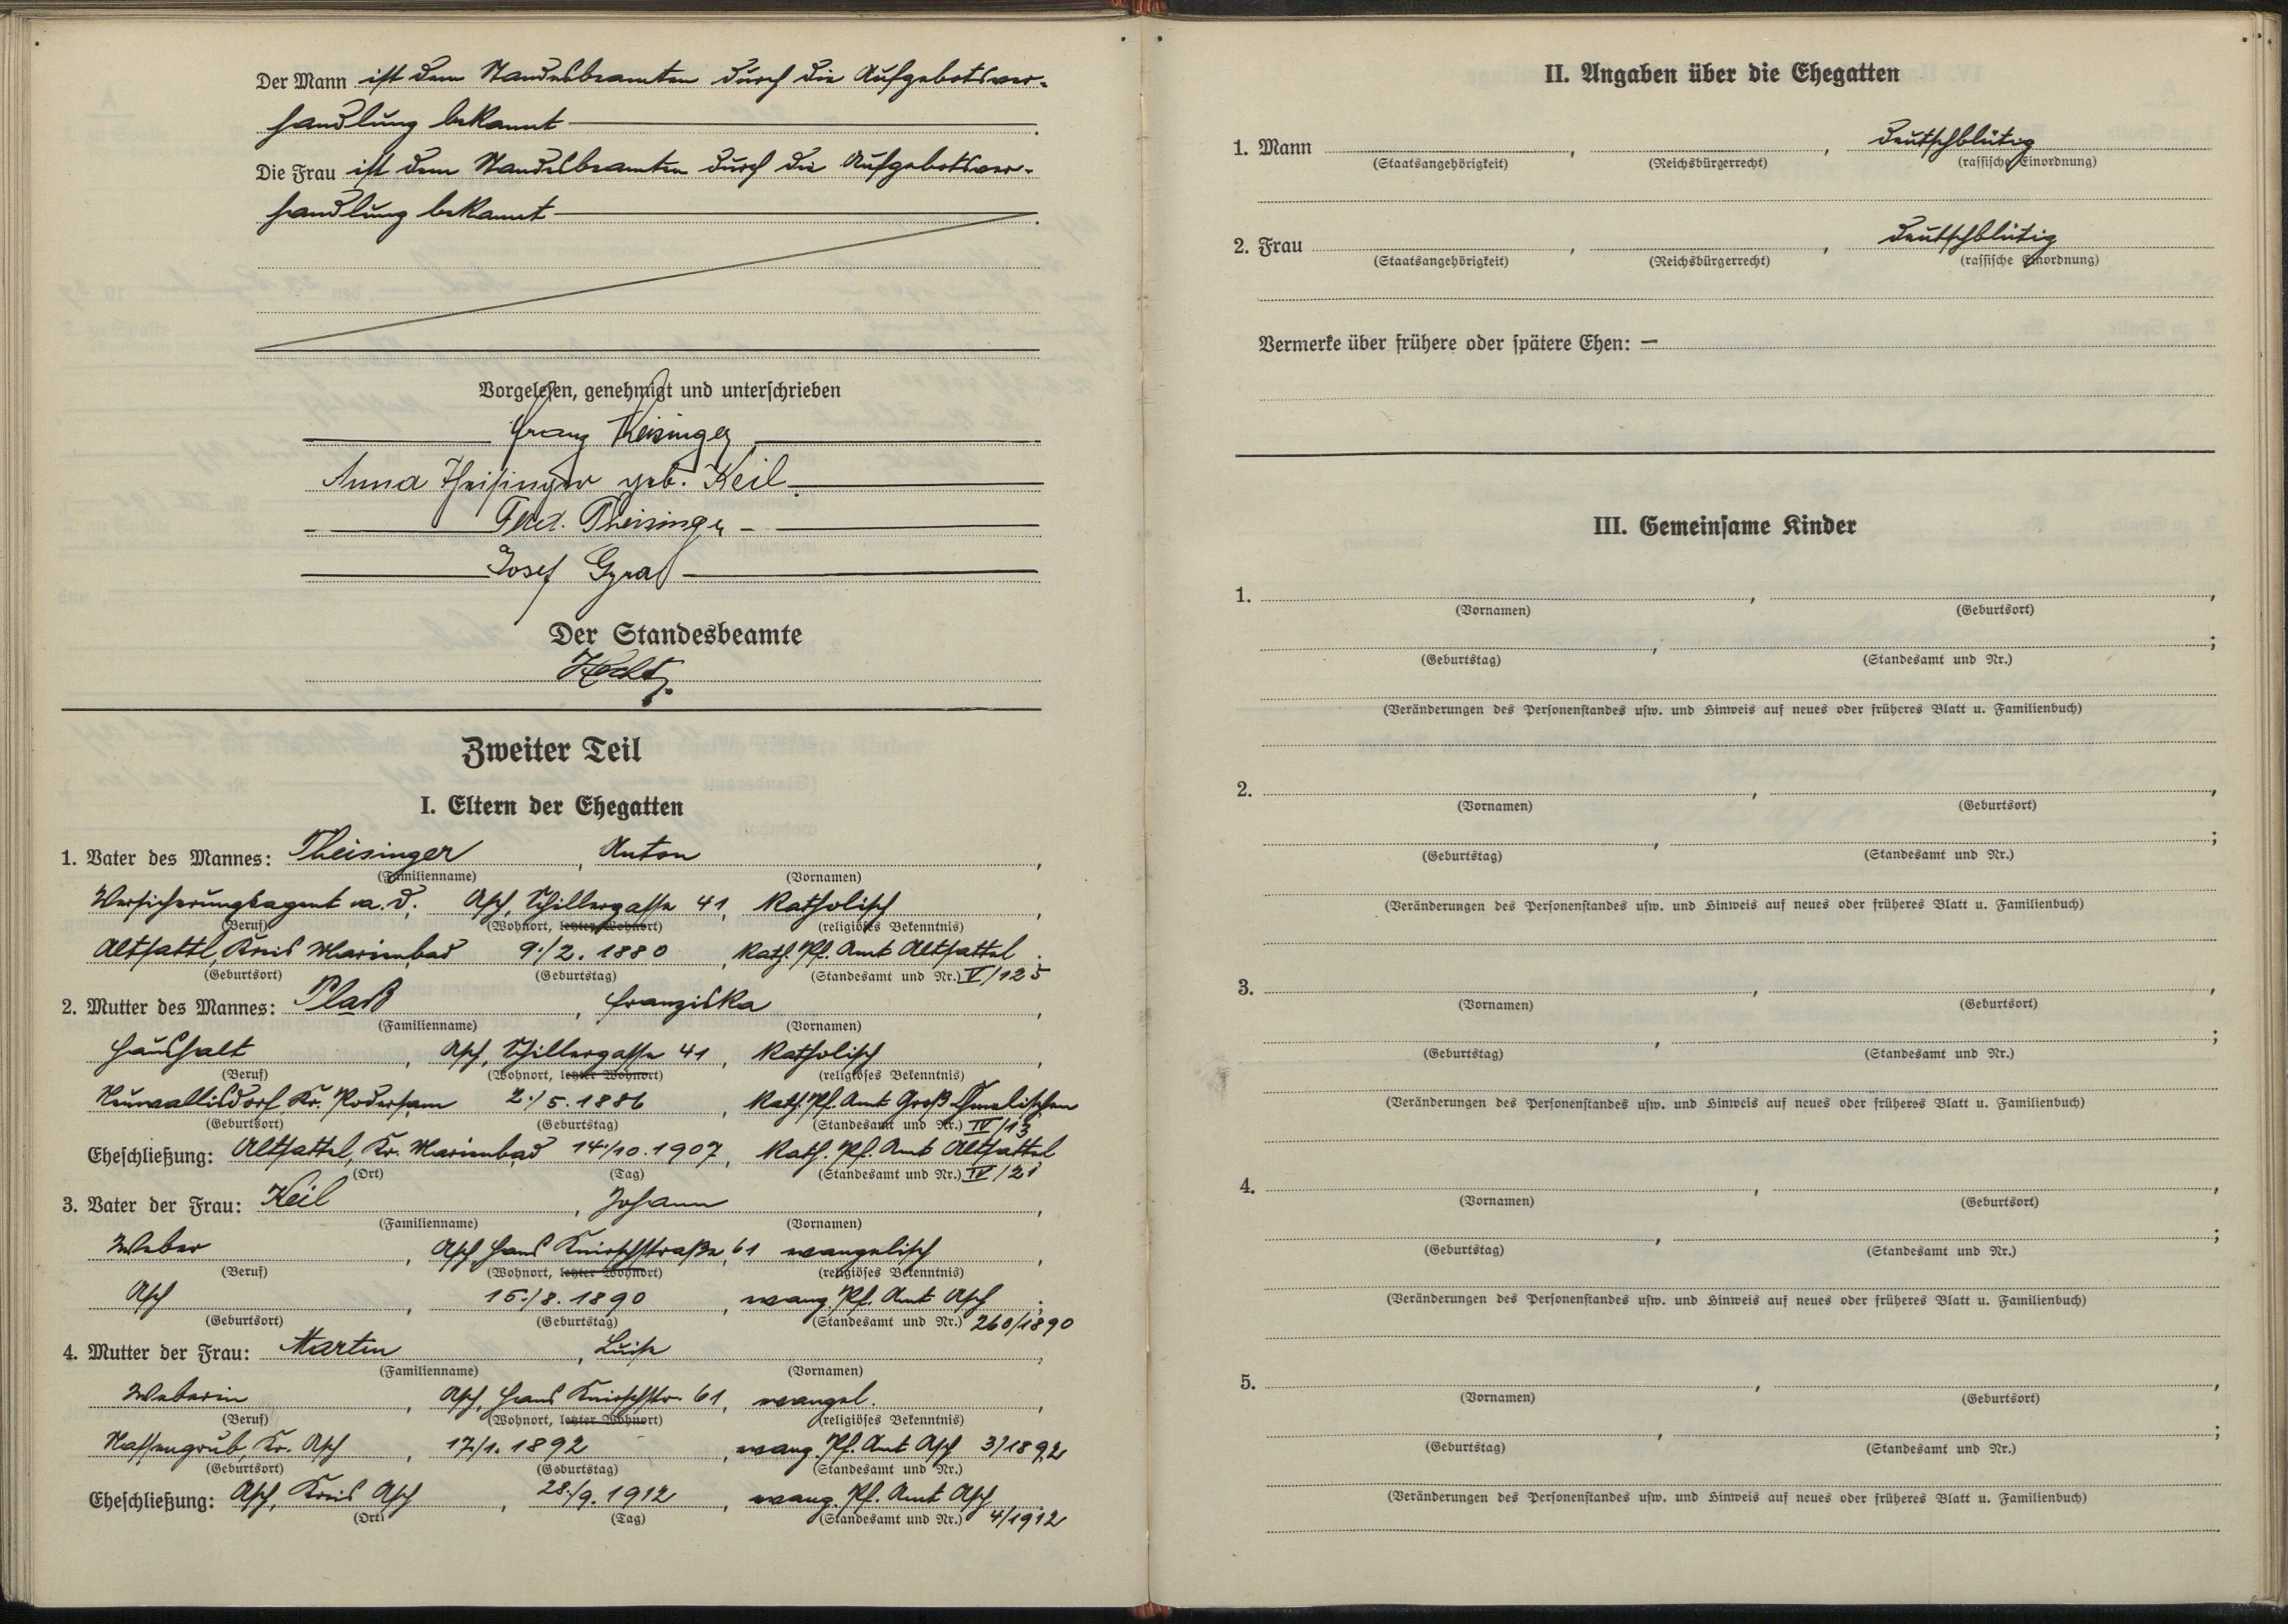 Der Mann ist dem Standesbeamten durch die Aufgebotsver-
handlung bekannt
Die Frau ist dem Standesbeamten durch die Aufgebotsver-
handlung bekannt
Vorgelesen, genehmigt und unterschrieben
Franz Theisinger
Anna Theisinger geb. Keil
Ferd. Theisinger
Josef
Der Standesbeamte
Zweiter Teil
I. Eltern der Ehegatten
1. Vater des Mannes: Theisinger, Anton,
(Familienname) (Vornamen)
Versicherungsagent a. d. Asch, Schillergasse 41, katholisch,
(Beruf) (Wohnort, letzter Wohnort) (religiöses Bekenntnis)
Altsattl, Kreis Marienbad 9./2. 1880, kath. Pf. Amt Altsattel.
(Geburtsort) (Geburtstag) (Standesamt und Nr.) V/125
2. Mutter des Mannes: Plaß, Franziska,
(Familienname) (Vornamen)
Haushalt, Asch, Schillergasse 41, katholisch,
(Beruf) (Wohnort, letzter Wohnort) (religiöses Bekenntnis)
Neuwallisdorf, Kr. Podersam 2./5. 1886, kath. Pf. Amt Groß
(Geburtsort) (Geburtstag) (Standesamt und Nr.) IV/13
Eheschließung: Altsattel, Kr. Marienbad 14./10. 1907, kath. Pf. Amt Altsattel
(Ort) (Tag) (Standesamt und Nr.) IV/21
3. Vater der Frau: Keil, Johann,
(Familienname) (Vornamen)
Weber, Asch, Hans Knirschstraße 61 evangelisch,
(Beruf) (Wohnort, letzter Wohnort) (religiöses Bekenntnis)
Asch, 15./8. 1890, evang. Pf. Amt Asch.
(Geburtsort) (Geburtstag) (Standesamt und Nr.) 260/1890
4. Mutter der Frau: Martin, Luise,
(Familienname) (Vornamen)
Weberin, Asch, Hans Knirschstr. 61, evangel.,
(Beruf) (Wohnort, letzter Wohnort) (religiöses Bekenntnis)
Nassengrub, Kr. Asch, 17./1. 1892, evang. Pf. Amt Asch 3/1892
(Geburtsort) (Geburtstag) (Standesamt und Nr.)
Eheschließung: Asch, Kreis Asch, 28./9. 1912, evang. Pf. Amt Asch
(Ort) (Tag) (Standesamt und Nr.) 4/1912
II. Angaben über die Ehegatten
1. Mann, , deutschblütig
(Staatsangehörigkeit) (Reichsbürgerrecht) (rassische Einordnung)
2. Frau, , deutschblütig
(Staatsangehörigkeit) (Reichsbürgerrecht) (rassische Einordnung)
Vermerke über frühere oder spätere Ehen: —
III. Gemeinsame Kinder
1. , ,
(Vornamen) (Geburtsort)
, ;
(Geburtstag) (Standesamt und Nr.)
(Veränderungen des Personenstandes usw. und Hinweis auf neues oder früheres Blatt u. Familienbuch)
2. , ,
(Vornamen) (Geburtsort)
, ;
(Geburtstag) (Standesamt und Nr.)
(Veränderungen des Personenstandes usw. und Hinweis auf neues oder früheres Blatt u. Familienbuch)
3. , ,
(Vornamen) (Geburtsort)
, ;
(Geburtstag) (Standesamt und Nr.)
(Veränderungen des Personenstandes usw. und Hinweis auf neues oder früheres Blatt u. Familienbuch)
4. , ,
(Vornamen) (Geburtsort)
, ;
(Geburtstag) (Standesamt und Nr.)
(Veränderungen des Personenstandes usw. und Hinweis auf neues oder früheres Blatt u. Familienbuch)
5. , ,
(Vornamen) (Geburtsort)
, ;
(Geburtstag) (Standesamt und Nr.)
(Veränderungen des Personenstandes usw. und Hinweis auf neues oder früheres Blatt u. Familienbuch)